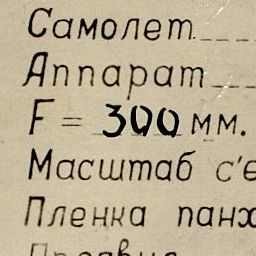 Самолет
Аппарат
F = 300 мм.
Масштаб с'е
Пленка панх